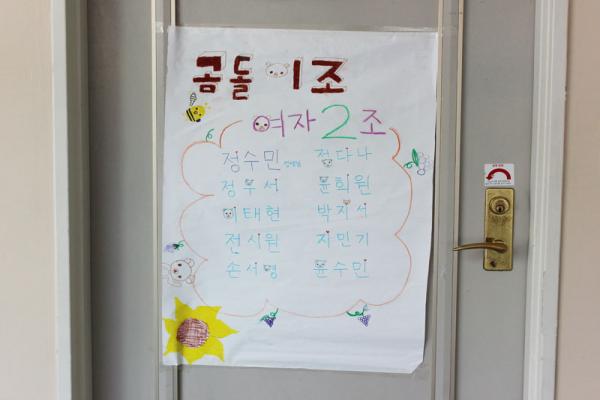 곰돌 이조
여자 2 조
정수민 정다나
정우서 윤희원
이태현 박지서
전시원 지민기
손서명 윤수민